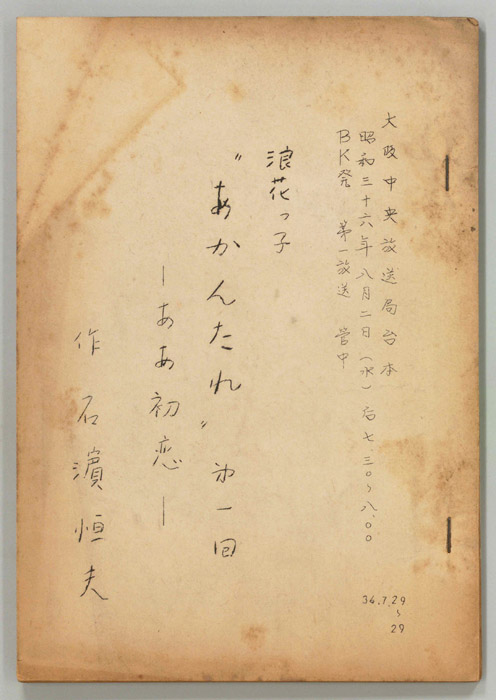 大阪中央放送局台本
昭和三十六年八月二日(水)后七.三〇〜八.〇〇
BK発 第一放送 管中
浪花っ子
"あかんたれ" 㐧一回
―ああ初恋―
作 石濱恒夫
34.7.29
〜
29